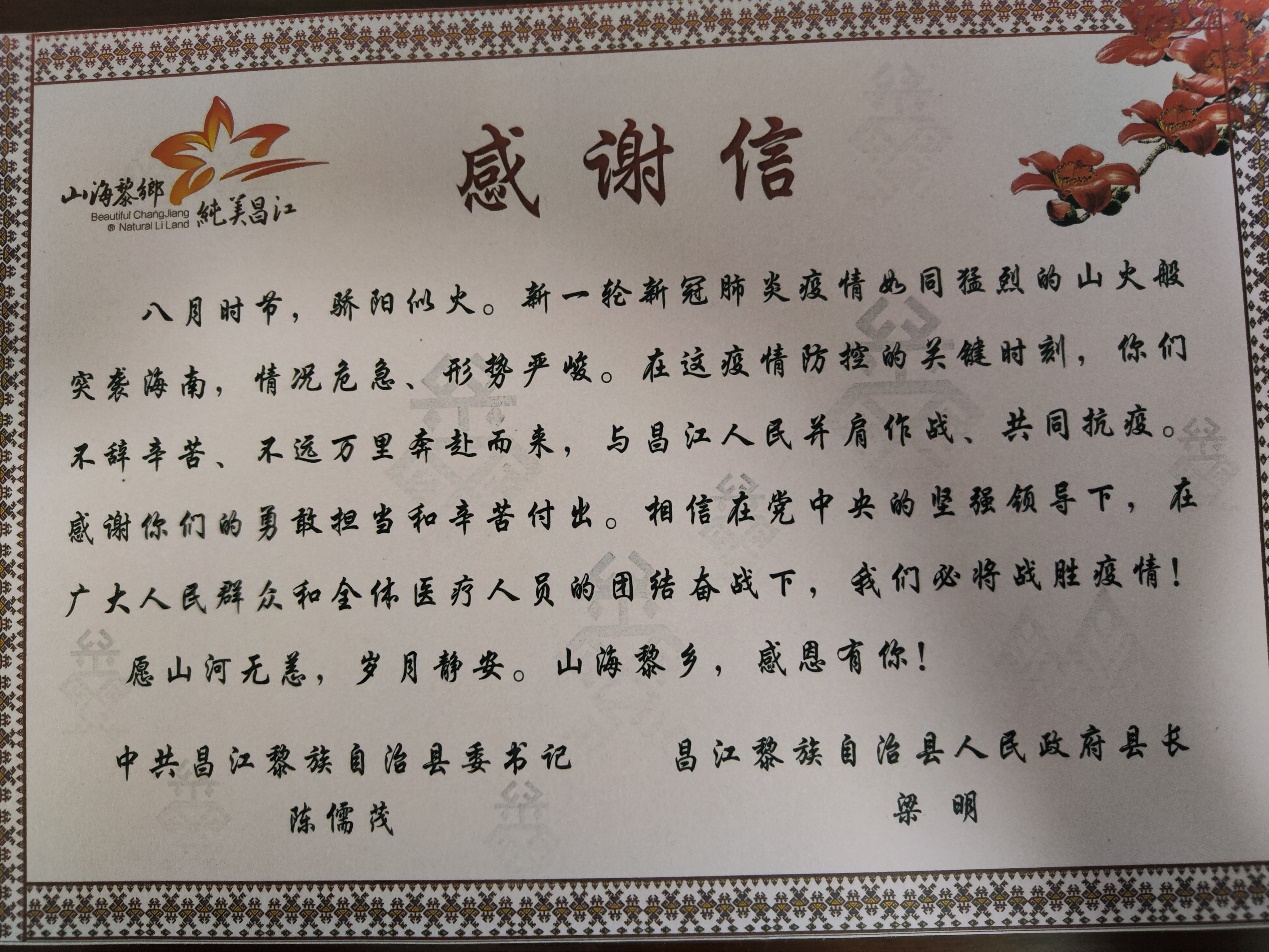 感谢信
山海黎鄉
Beautiful ChangJiang
® Natural Li Land
純美昌江
八月时节，骄阳似火。新一轮新冠肺炎疫情如同猛烈的山火般
突袭海南，情况危急、形势严峻。在这疫情防控的关键时刻，你们
不辞辛苦、不远万里奔赴而来，与昌江人民并肩作战、共同抗疫。
感谢你们的勇敢担当和辛苦付出。相信在党中央的坚强领导下，在
广大人民群众和全体医疗人员的团结奋战下，我们必将战胜疫情！
愿山河无恙，岁月静安。山海黎乡，感恩有你！
中共昌江黎族自治县委书记
陈儒茂
昌江黎族自治县人民政府县长
梁 明